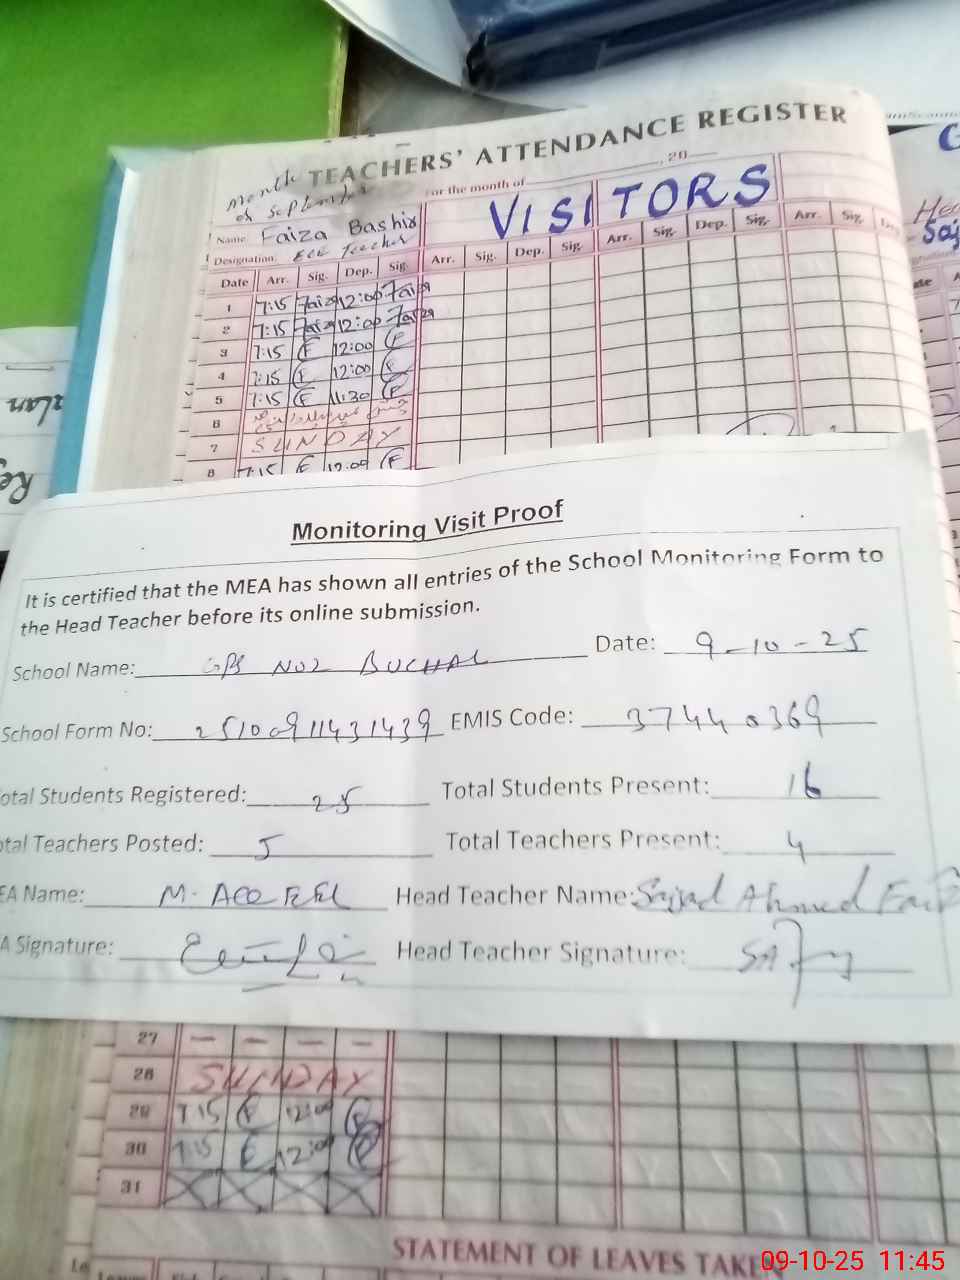 TEACHERS' ATTENDANCE REGISTER
Month
of September
For the month of , 20
VISITORS
Name Faiza Bashir
Designation: ECE Teacher
Date Arr. Sig. Dep. Sig. Arr. Sig. Dep. Sig. Arr. Sig. Dep. Sig. Arr. Sig.
1 7:15 Faiza 12:00 Faiza
2 7:15 Faiza 12:00 Faiza
3 7:15 F 12:00 F
4 7:15 F 12:00 F
5 7:15 F 11:30 F
6
7 SUNDAY
8 7:15 F 12:00 F
Monitoring Visit Proof
It is certified that the MEA has shown all entries of the School Monitoring Form to
the Head Teacher before its online submission.
School Name: GPS NO2 BUCHAL Date: 9-10-25
School Form No: 25100911431439 EMIS Code: 37440369
otal Students Registered: 25 Total Students Present: 16
tal Teachers Posted: 5 Total Teachers Present: 4
EA Name: M. Head Teacher Name: Sajjad Ahmed
A Signature: Head Teacher Signature:
27 — — — —
28 SUNDAY
29 7 15 F 12:00 F
30 7:15 F 12:00 F
31
STATEMENT OF LEAVES TAKEN
09-10-25 11:45